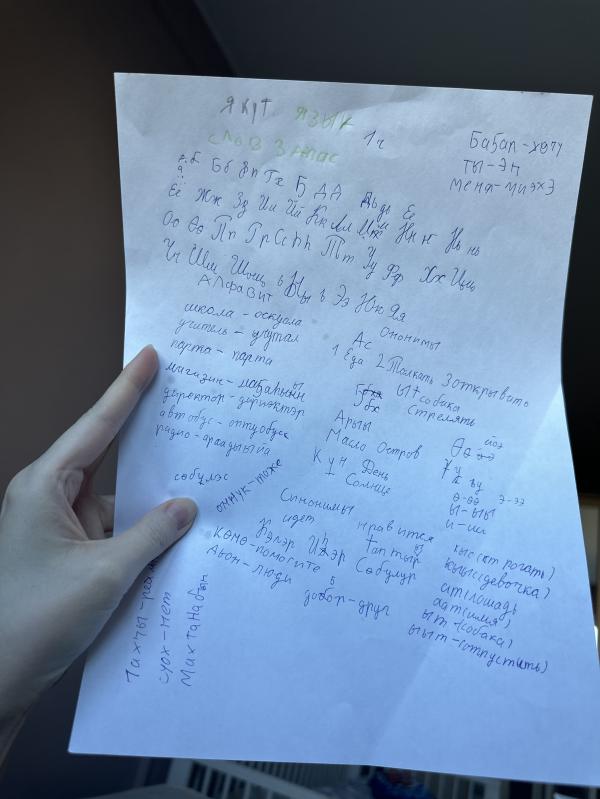 ЯКУТ ЯЗЫК
1ч
СЛОВ ЗАПАС
Баҕап-хөтү
ты-эн
мена-миэхэ
Бб Вп Гх Ҕ ДД Дьдь Ее
Ёё Жж Зз Ии Йй Кк Лл Мм Нн ҥ Нь нь
Оо Өө Пп Гр Сс Һһ Тт Уу Фф Хх Цц
Чч Шш Щщ ъ Ыы ь Ээ Юю Яя
Алфавит
школа - оскуола
учитель - учутал
парта - парта
магазин - маҕаһыын
директор - дириэктэр
автобус - оптуобус
радио - араадыйа
Омонимы
Ас
1 Еда 2 Толкать 3 открывать
Ыт
собака
Стрелять
Арыы
Масло Остров
Күн День
Солнце
ө-өө э-ээ
ы-ыы
и-ии
сөбүлэс
оннук - тоже
Синонимы
идет нравится
Кэлэр Иһэр Таптыыр Сөбүлүүр
көмө - помогите
дьон - люди
доҕор - друг
кыс(ст рогать)
кыыс(девочка)
ат(лошадь
аат(имя)
ыт-(собака)
ыыт-(отпустить)
суох - нет
Махтанабын